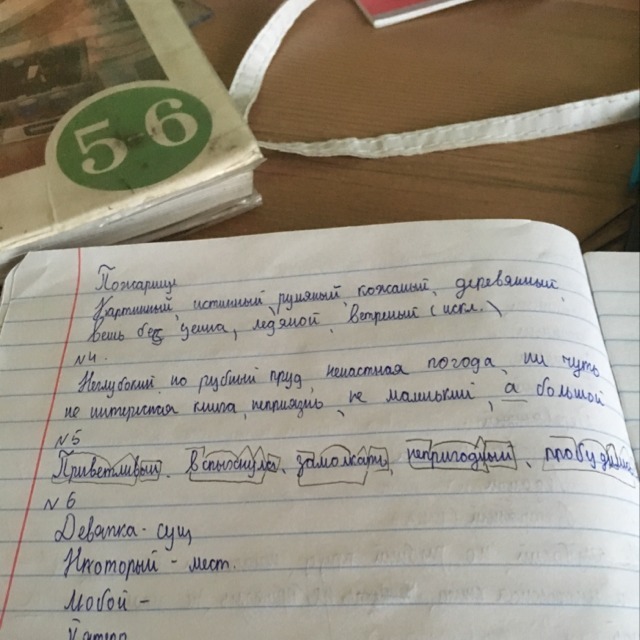 5-6
Пожарище
Картинный, истинный, румяный, кожаный, деревянный,
вещь без ценна, ледяной, ветреный (искл.)
№4.
Неглубокий, но рубный пруд, ненастная погода, ни чуть
не интересная книга, неприязнь, не маленький, а большой
№5
Приветливый, вспыхнула, замолкать, непригодный,
№6
Девятка - сущ
Некоторый - мест.
Любой -